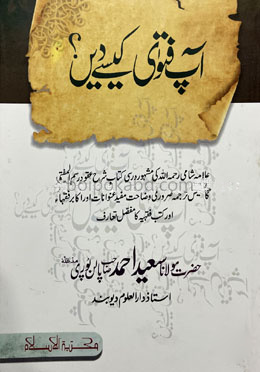 آپ فتویٰ کیسے دیں؟
علامہ شامی رحمہ اللہ کی مشہور درسی کتاب شرح عقود رسم المفتی
کا سلیس ترجمہ ضروری وضاحت مفید عنوانات اور اکابر فقہاء
اور کتب فقہیہ کا مفصل تعارف
حضرت مولانا سعید احمد صاحب پالن پوری مدظلہ
استاذ دارالعلوم دیوبند
boipokabd.com